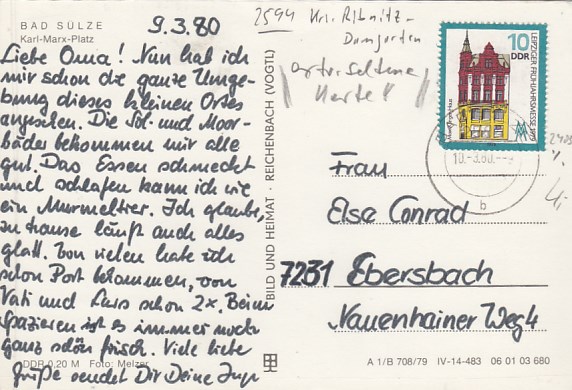 BAD SÜLZE
Karl-Marx-Platz
9.3.80
Liebe Oma! Nun hab ich
mir schon die ganze Umge-
bung dieses kleinen Ortes
angesehen. Die Sol- und Moor-
bäder bekommen mir alle
gut. Das Essen schmeckt
und schlafen kann ich wie
ein Murmeltier. Ich glaube,
zu hause läuft auch alles
glatt. Von vielen habe ich
schon Post bekommen, von
Vati und Lars schon 2x. Beim
Spazieren ist es immer noch
ganz schön frisch. Viele liebe
Grüße sendet Dir Deine
DDR 0,20 M Foto: Melzer
BILD UND HEIMAT · REICHENBACH (VOGTL)
2594 Krs. Ribnitz-
Damgarten
seltene
Karte
10
DDR
LEIPZIGER FRÜHJAHRSMESSE 1979
10.-3.80.-9
b
Frau
Else Conrad
7231 Ebersbach
Nauenhainer Weg 4
A 1/B 708/79 IV-14-483 06 01 03 680